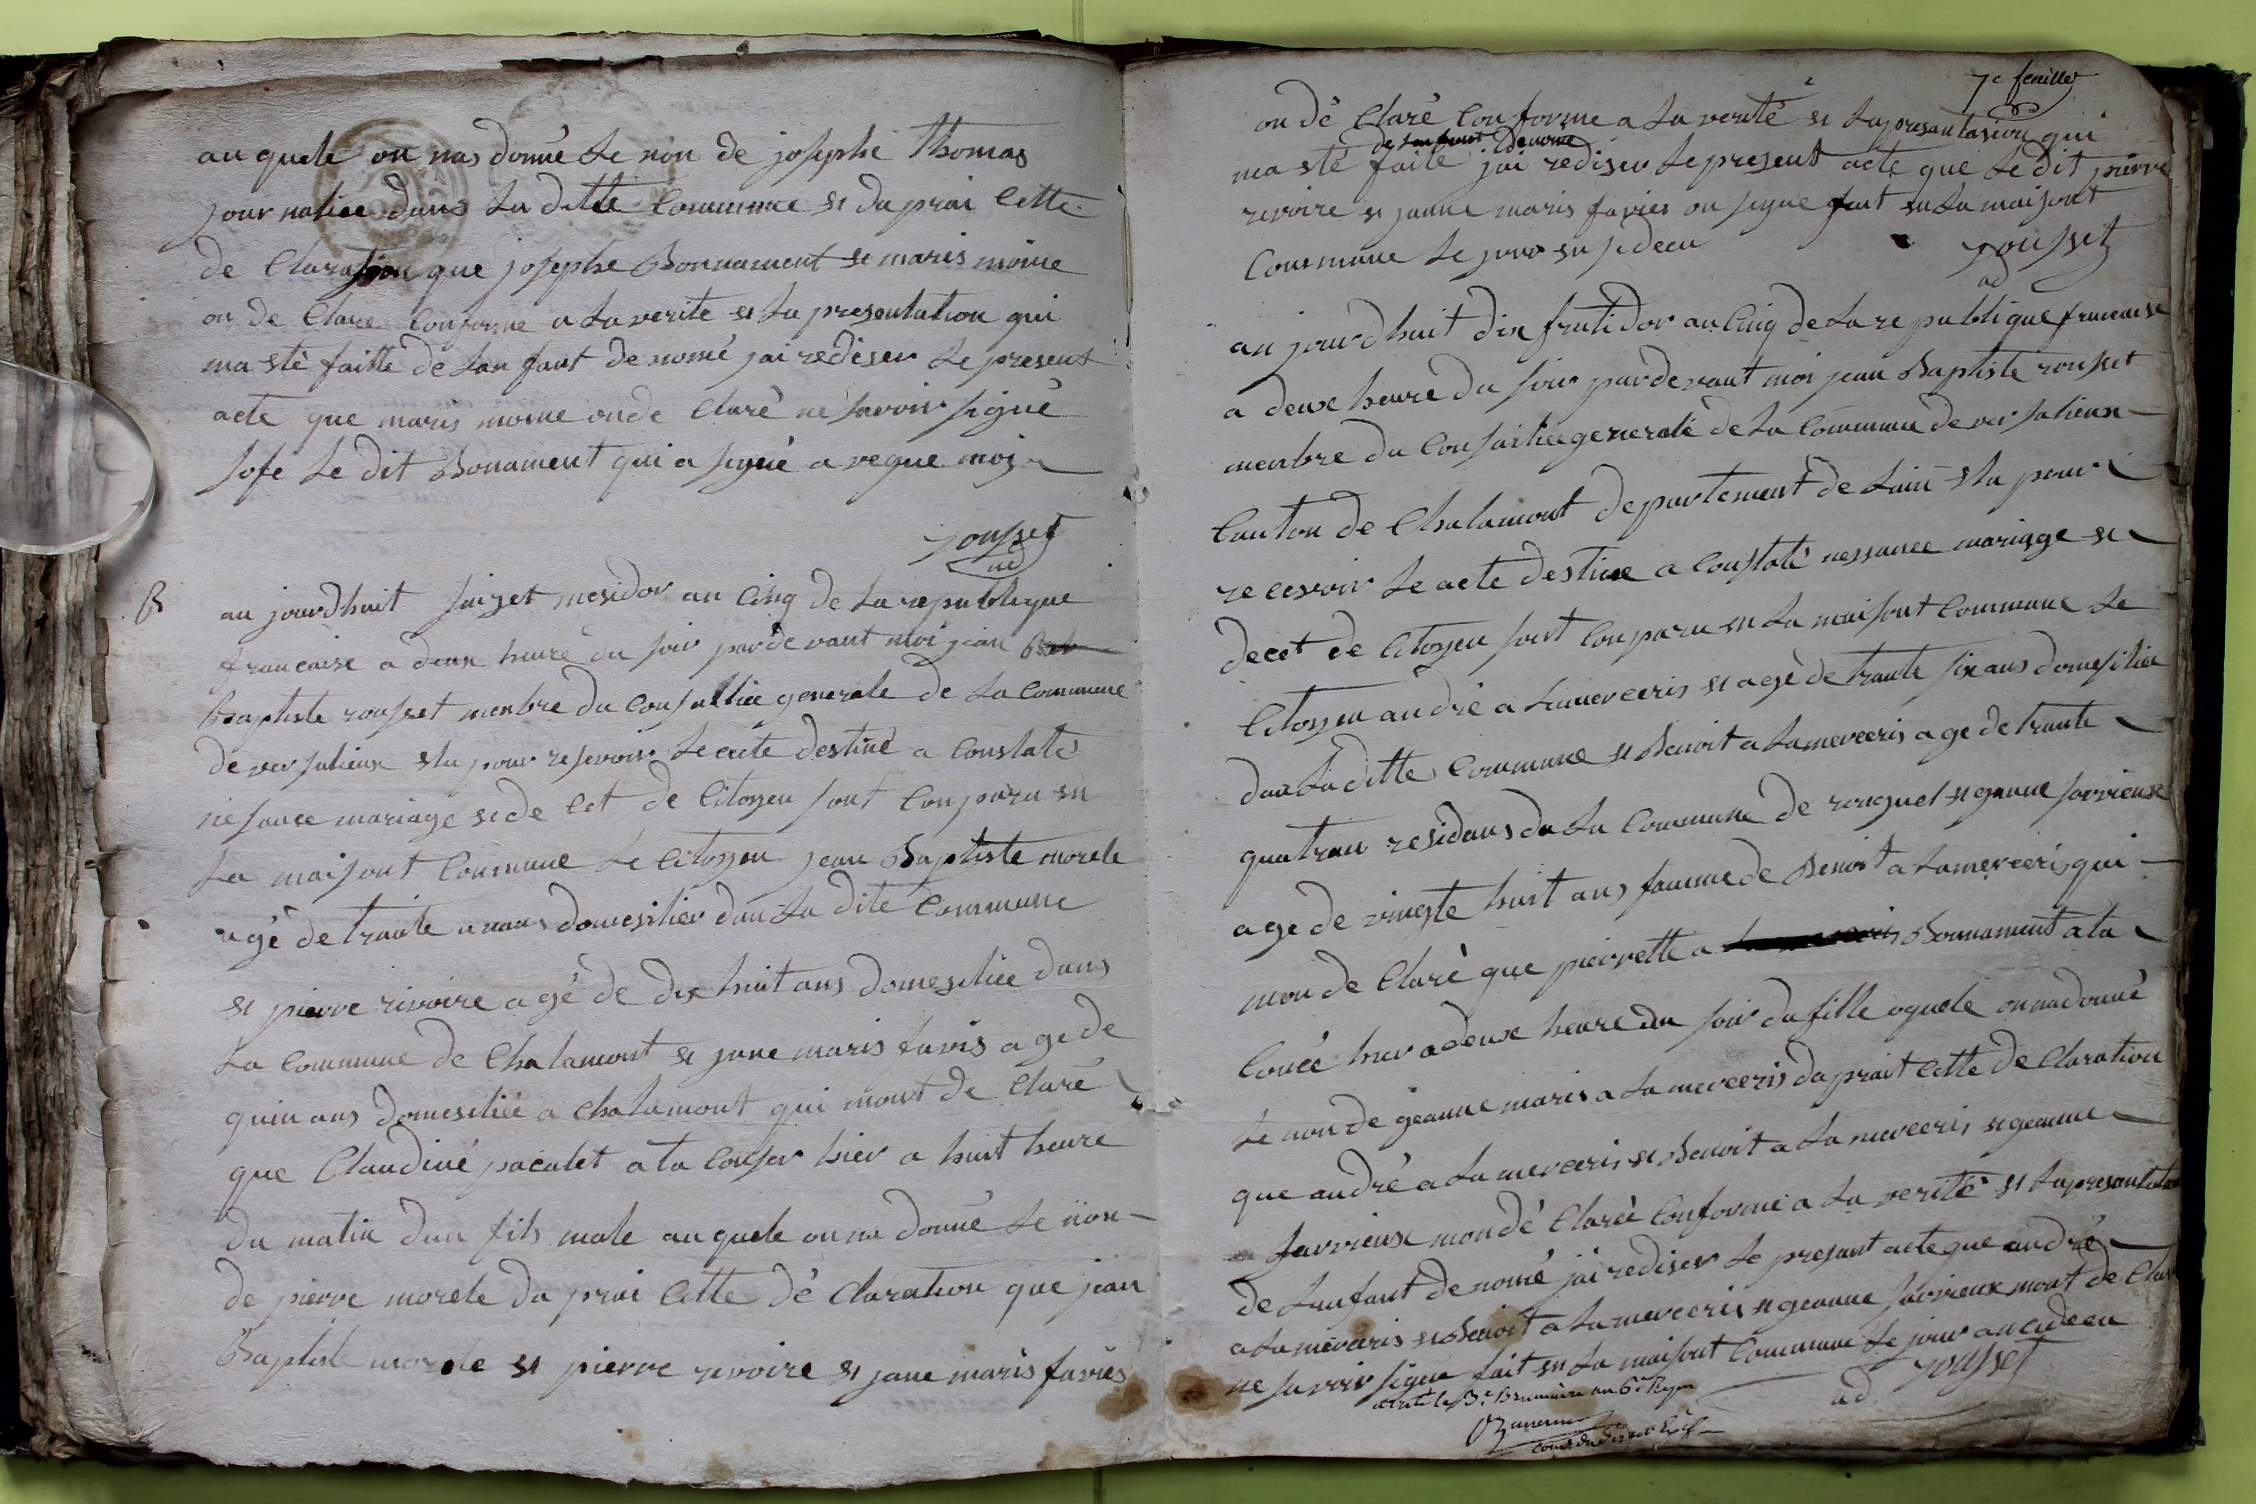 au quele on nas donné le non de josephe thomas
jour natice dans la ditte Commune et daprai Cette
de Claration que josephe Bonnament et maris moine
on de Claré Conforme a la verite et la presentation qui
ma eté faitte de lan fant de nomé jai rediser le present
acte que maris moine on de Claré ne savoir signé
sofe le dit Bonament qui a signé a veque moi
rousset
ad
B
au jourdhuit saizet mesidor an Cinq de la republique
francaise a deux heure du soir par devant moi jean
Baptiste rousset menbre du Consallier generale de la Commune
de versalieux elu pour resevoir le acte destiné a Constaté
nesance mariage et de Cet de Citoyen sont Conparu en
la maisont Commune le Citoyen jean Baptiste morele
agé de trante a nans domesilier dan la dite Commune
et pierre rivoire agé de dix huit ans domesiliée dans
la Commune de Chalamont et jane maris favis age de
quin ans domesiliée a Chalamont qui mont de Claré
que Claudine pacalet a ta Couser hier a huit heure
du matin dun fils male au quele on na donné le non
de pierre morele da prai Cette dé Claration que jean
Baptiste morele et pierre revoire et jane maris favies
7e feuillet
on dé Claré Conforme a la verité et la presantasion qui
de lan fant denomé
ma eté faite jai rediser le present acte que le dit pierre
revoire et janne maris favies on signé fait en la maisont
Commune le jour en sideeu
rousset
ad
au jourdhuit dix frutidor an Cinq de la re publique francaise
a deux heure du soir par devant moi jean Baptiste rousset
menbre du Consailier generale de la Commune de versalieux
Canton de Chalamont departement de lain elu pour
recevoir le acte destine a Constaté nessance mariage et
decet de Citoyen sont Conparu en la maisont Commune le
Citoyen andré a lamerceris et agé de trante six ans domesilier
dan la ditte Commune et Benoit a lamerceris age de trante
quatran residans da la Commune de et geanne savrieux
age de vingte huit ans famme de Benoit a lamerceris qui
mon de Claré que pierrette a Bonnament a ta
Couée hier a deux heure du soir du fille a quele on na donné
le non de geanne maris a lamerceris daprait Cette de Claration
que andré a lamerceris et Benoit a lamerceris et geanne
savrieux mon dé Claré Conforme a la verité et la presantation
de lan fant de nomé jai rediser le presant acte que andré
a lamerceris et Benoit a lamerceris et geanne savrieux mont de Claré
ne savoir signé fait en la maisont Commune le jour an cideeu
rousset
ad
arrêté le 3e Brumaire an 6e